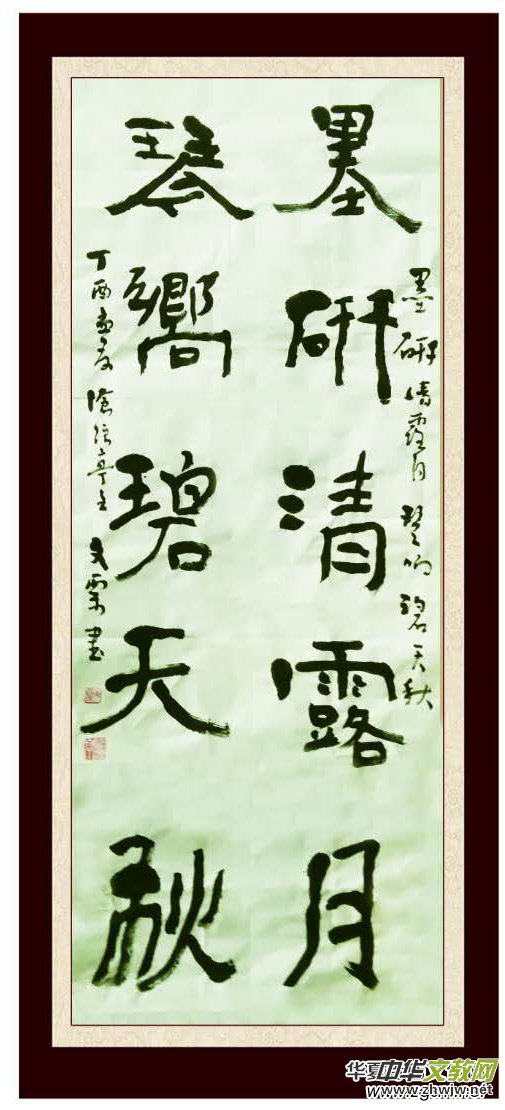 墨研清露月 琴响碧天秋
墨研清露月
琴嚮碧天秋
丁酉孟夏 亭主 文 書
华夏中华文教网